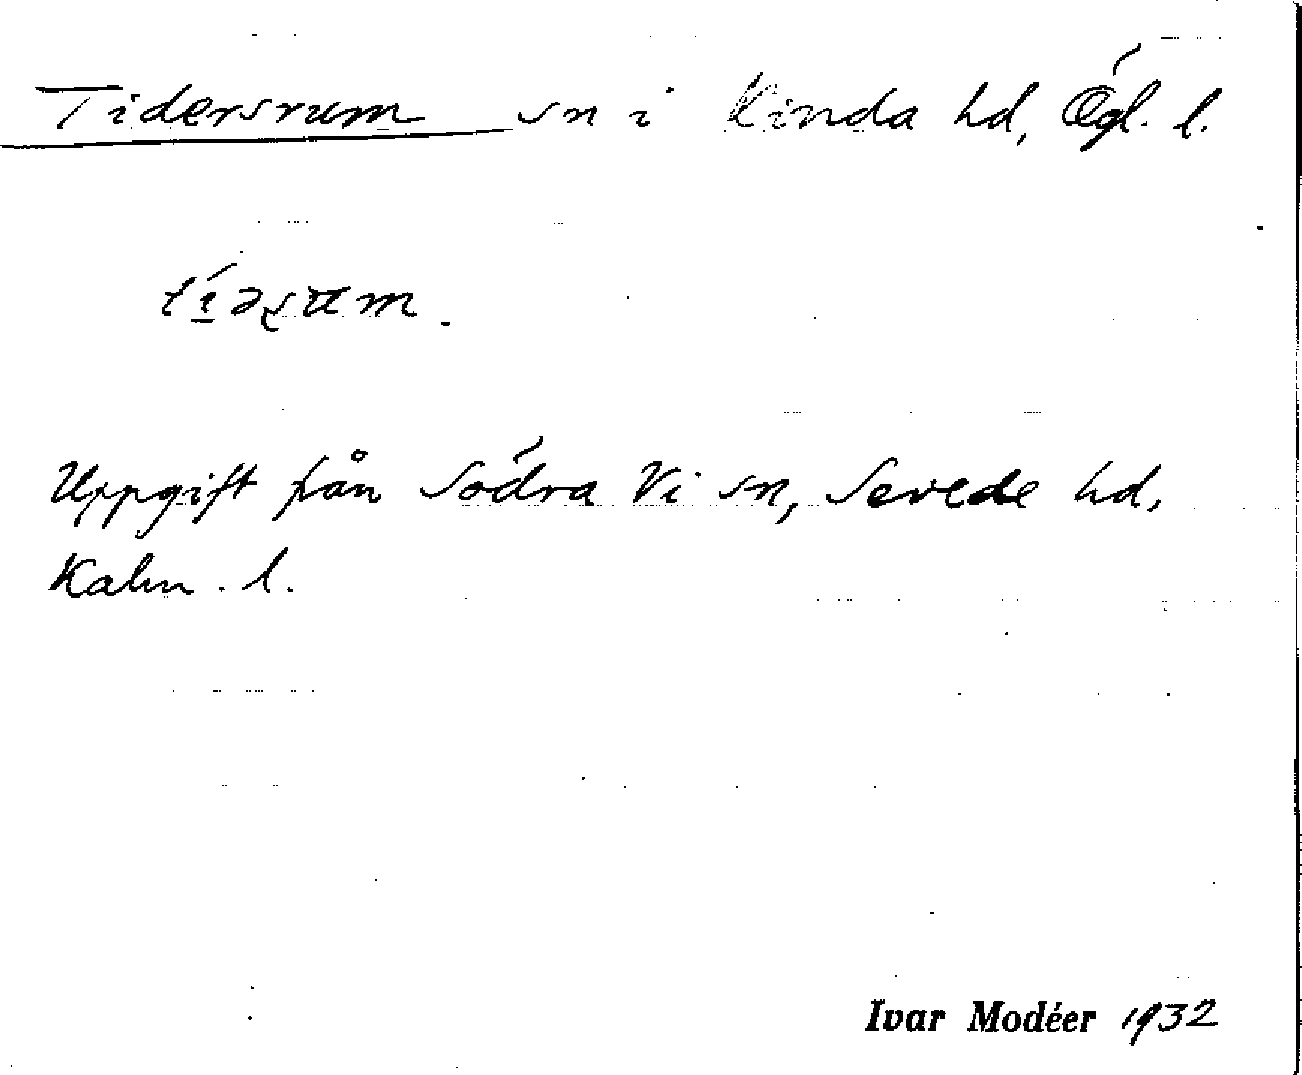 Tidersrum sn i Kinda hd, Ögl. l.
Uppgift från Södra Vi sn, Sevede hd,
Kalm. l.
Ivar Modéer 1932